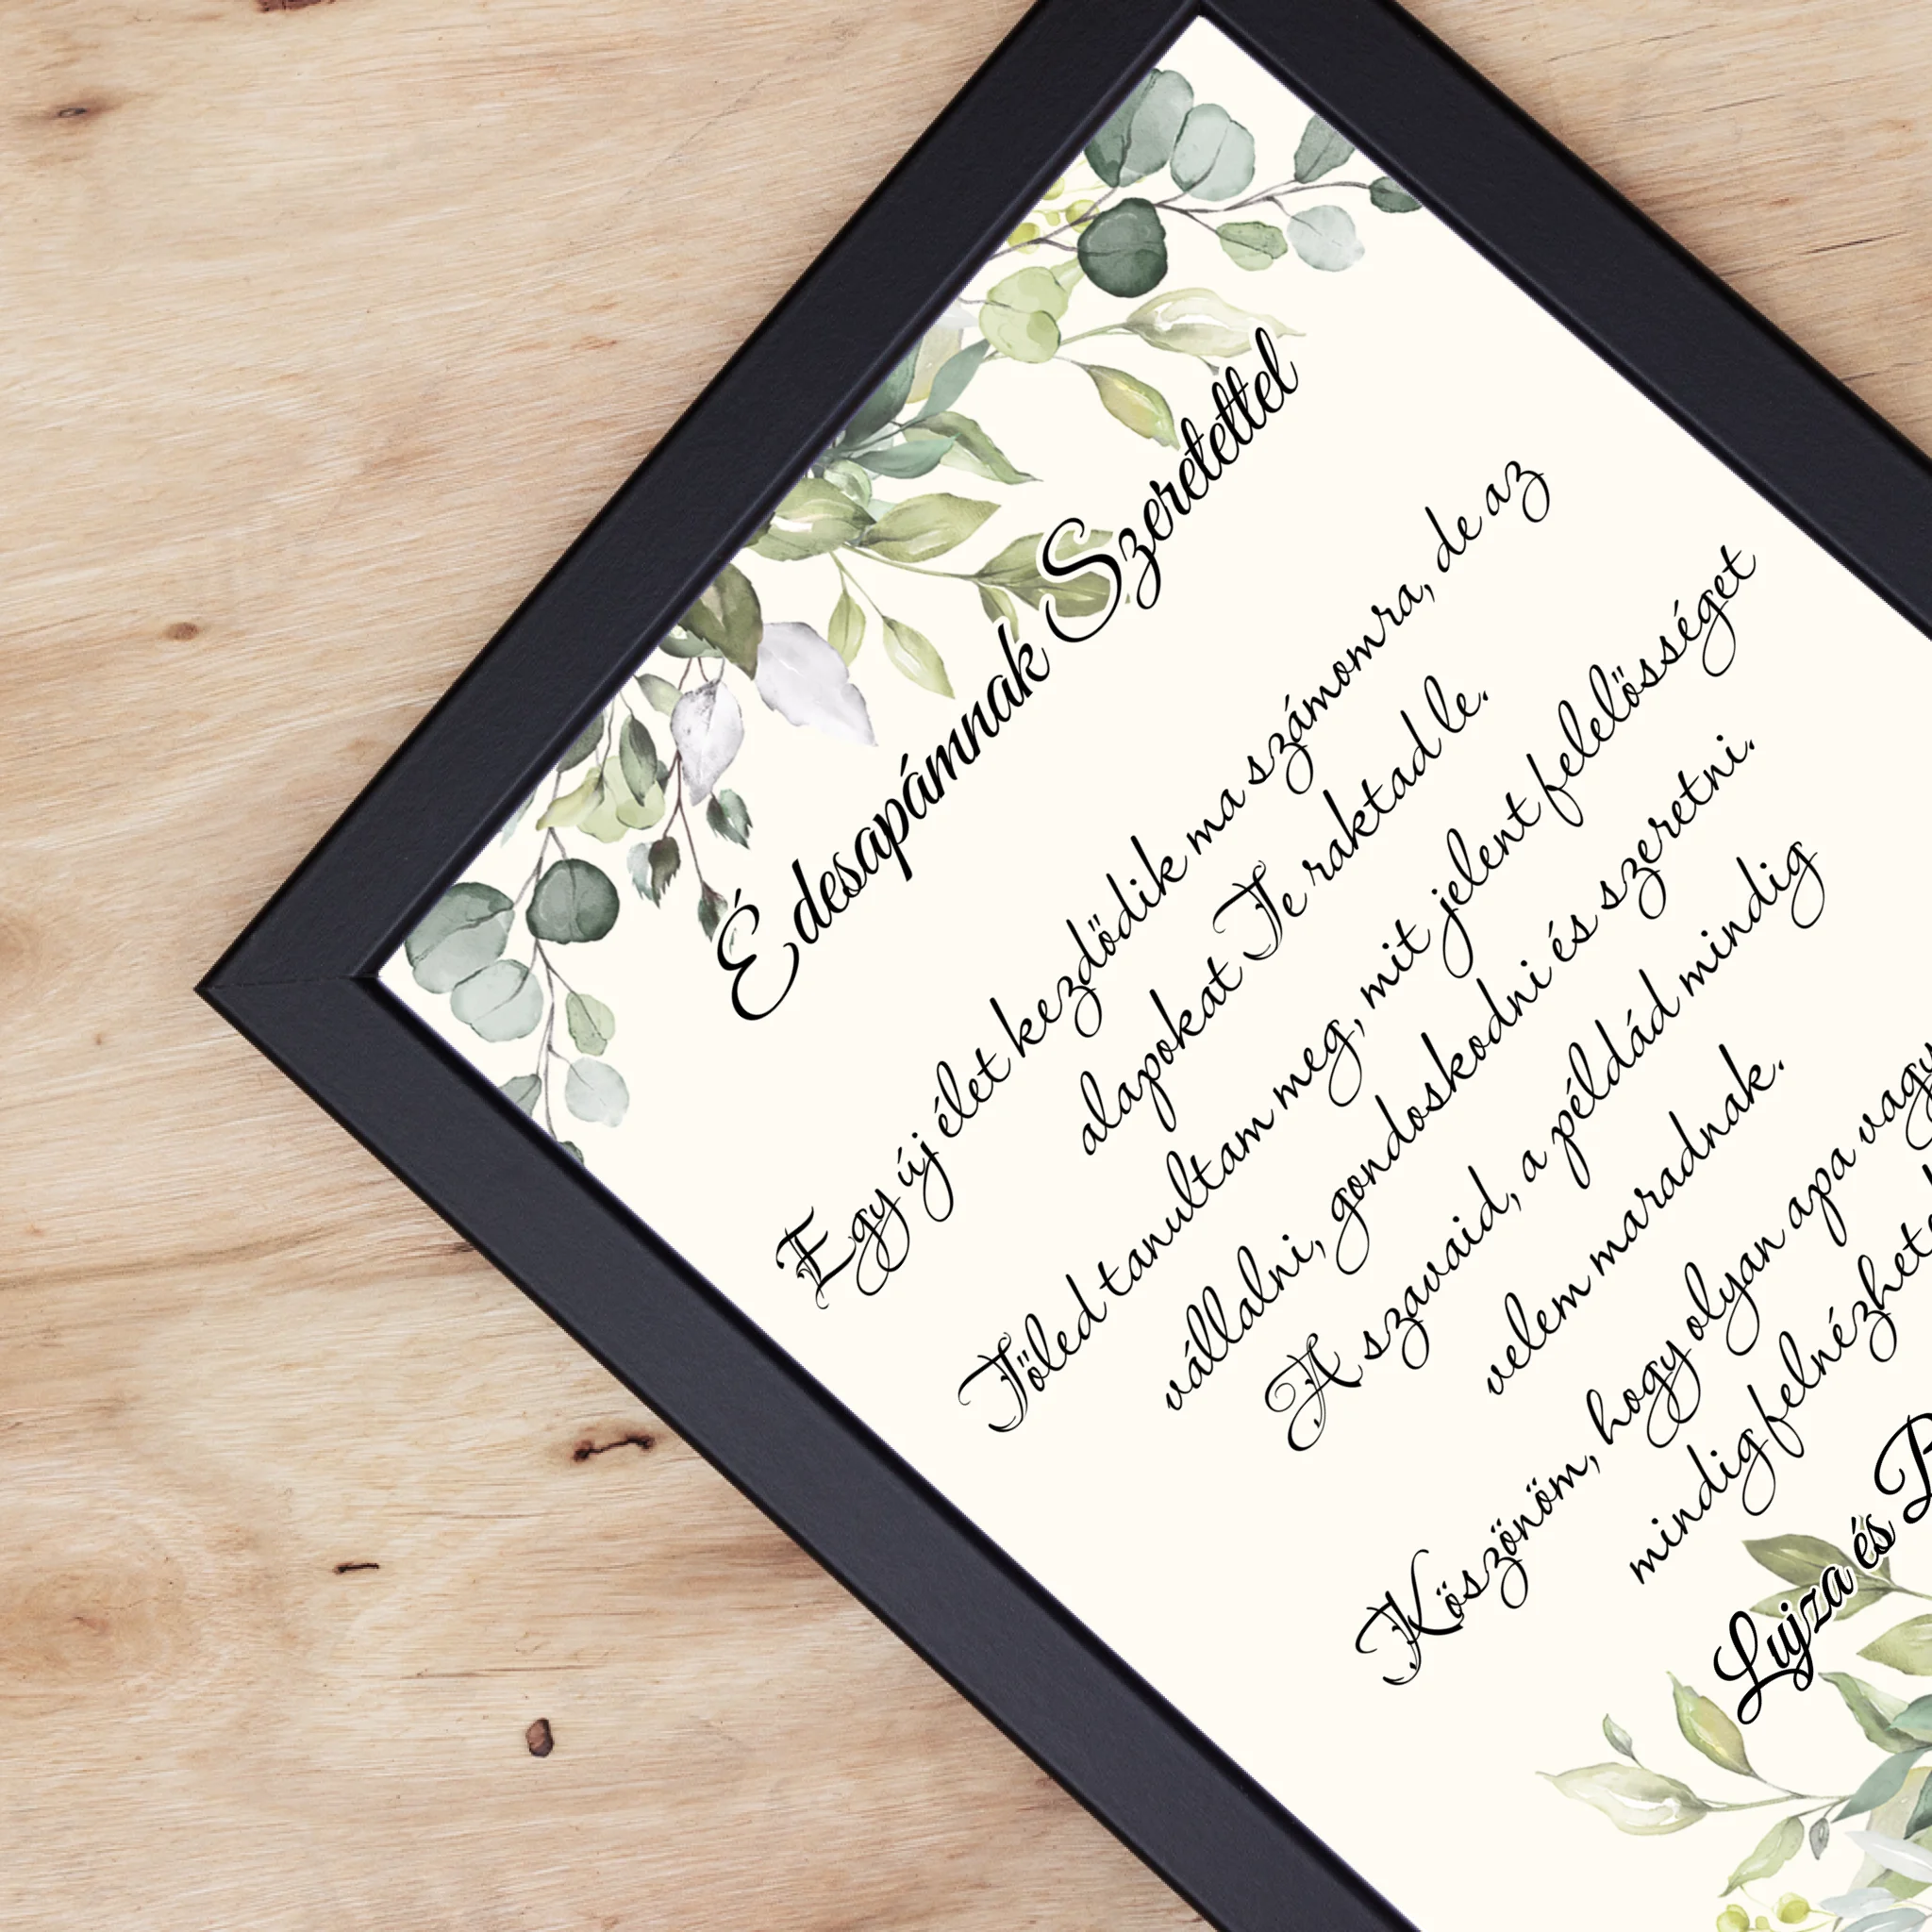 Édesapámnak Szeretettel
Egy új élet kezdődik ma számomra, de az
alapokat Te raktad le.
Tőled tanultam meg, mit jelent felelősséget
vállalni, gondoskodni és szeretni.
A szavaid, a példád mindig
velem maradnak.
Köszönöm, hogy olyan apa vagy
mindig
Lujza és